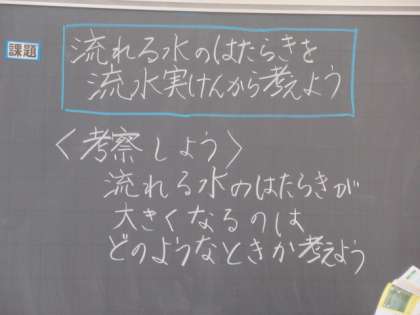 課題
流れる水のはたらきを
流水実けんから考えよう
〈考察しよう〉
流れる水のはたらきが
大きくなるのは
どのようなときか考えよう